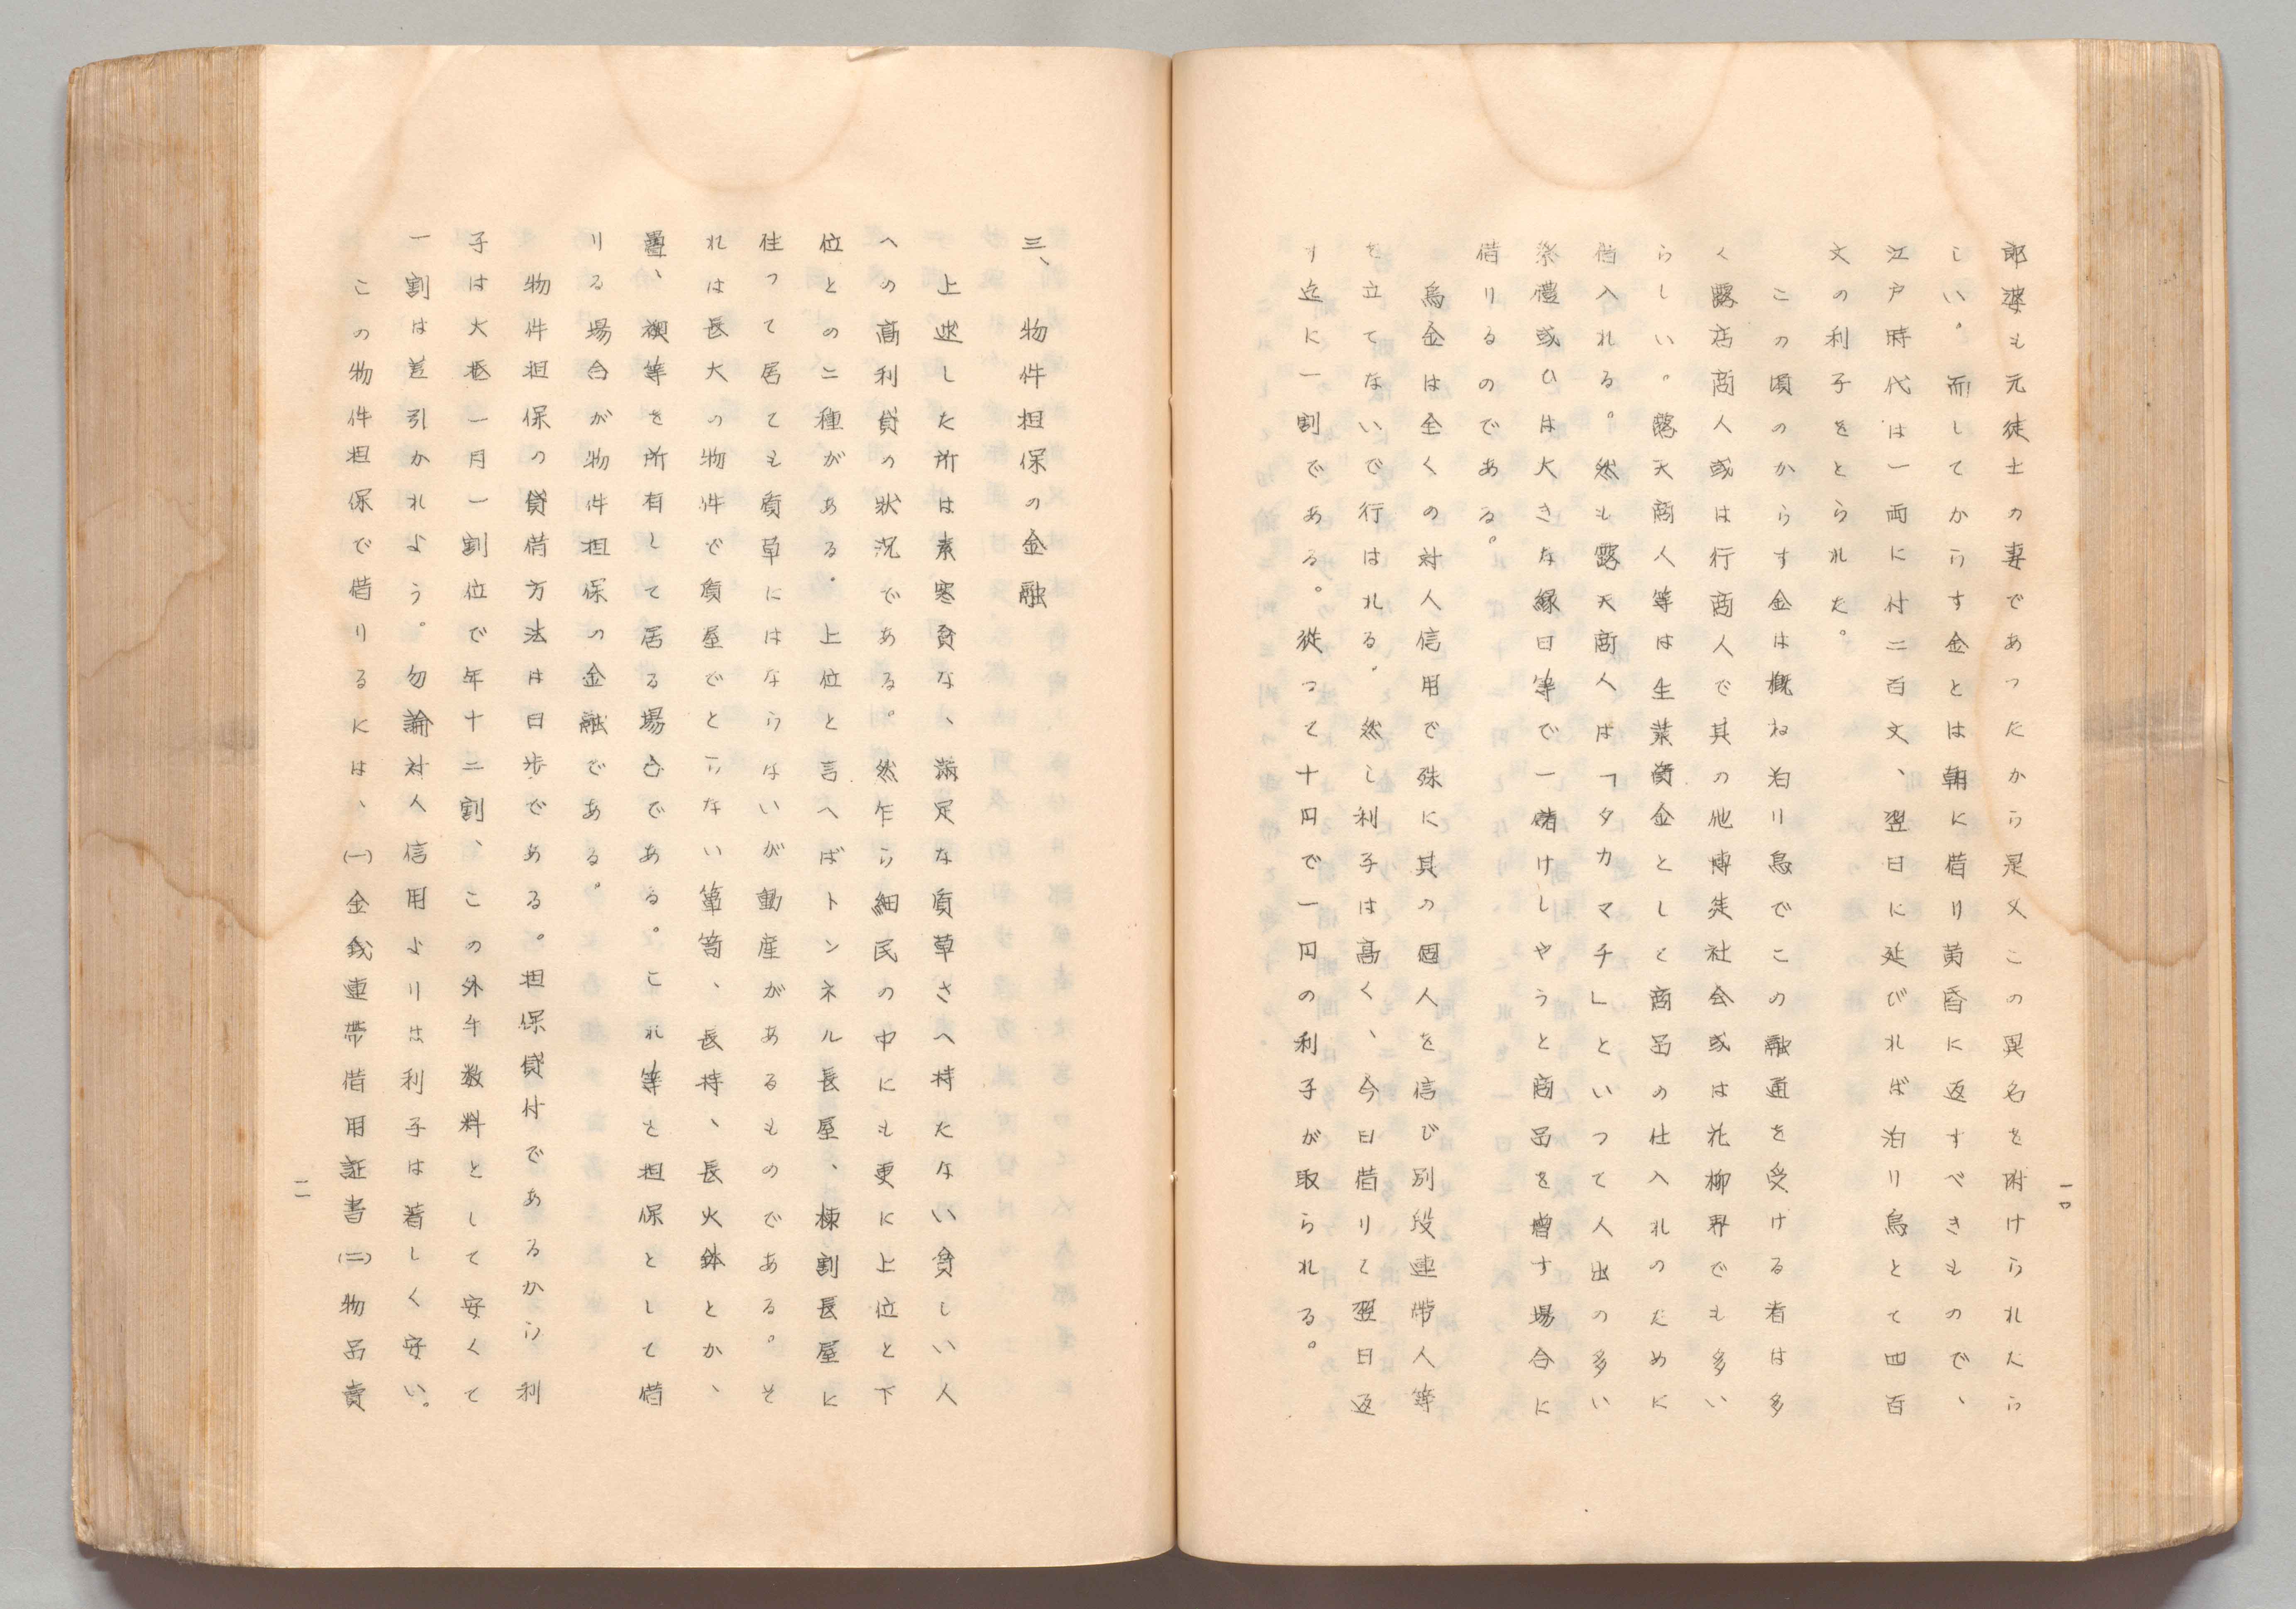 一〇
郎婆も元徒士の妻であつたから是又この異名を附けられたら
しい。而してからす金とは朝に借り黄昏に返すべきもので、
江戸時代は一両に付二百文、翌日に延びれば泊り烏とて四百
文の利子をとられた。
この頃のからす金は概ね泊り烏でこの融通を受ける者は多
く露店商人或は行商人で其の他博徒社会或は花柳界でも多い
らしい。露天商人等は生業資金として商品の仕入れのために
借入れる。然も露天商人は「タカマチ」といつて人出の多い
祭禮或ひは大きな縁日等で一儲けしやうと商品を増す場合に
借りるのである。
烏金は全くの対人信用で殊に其の個人を信じ別段連帯人等
を立てないで行はれる。然し利子は高く、今日借りて翌日返
す迄に一割である。従つて十円で一円の利子が取られる。
三、物件担保の金融
上述した所は素寒貧な、満足な質草さへ持たない貧しい人
への高利貸の状況である。然乍ら細民の中にも更に上位と下
位との二種がある。上位と言へばトンネル長屋、棟割長屋に
住つて居ても質草にはならないが動産があるものである。そ
れは長大の物件で質屋でとらない箪笥、長持、長火鉢とか、
疊、襖等を所有して居る場合である。これ等を担保として借
りる場合が物件担保の金融である。
物件担保の貸借方法は日歩である。担保貸付であるから利
子は大抵一月一割位で年十二割、この外手数料として安くて
一割は差引かれよう。勿論対人信用よりは利子は著しく安い。
この物件担保で借りるには、(一)金銭連帯借用証書(二)物品賣
一一